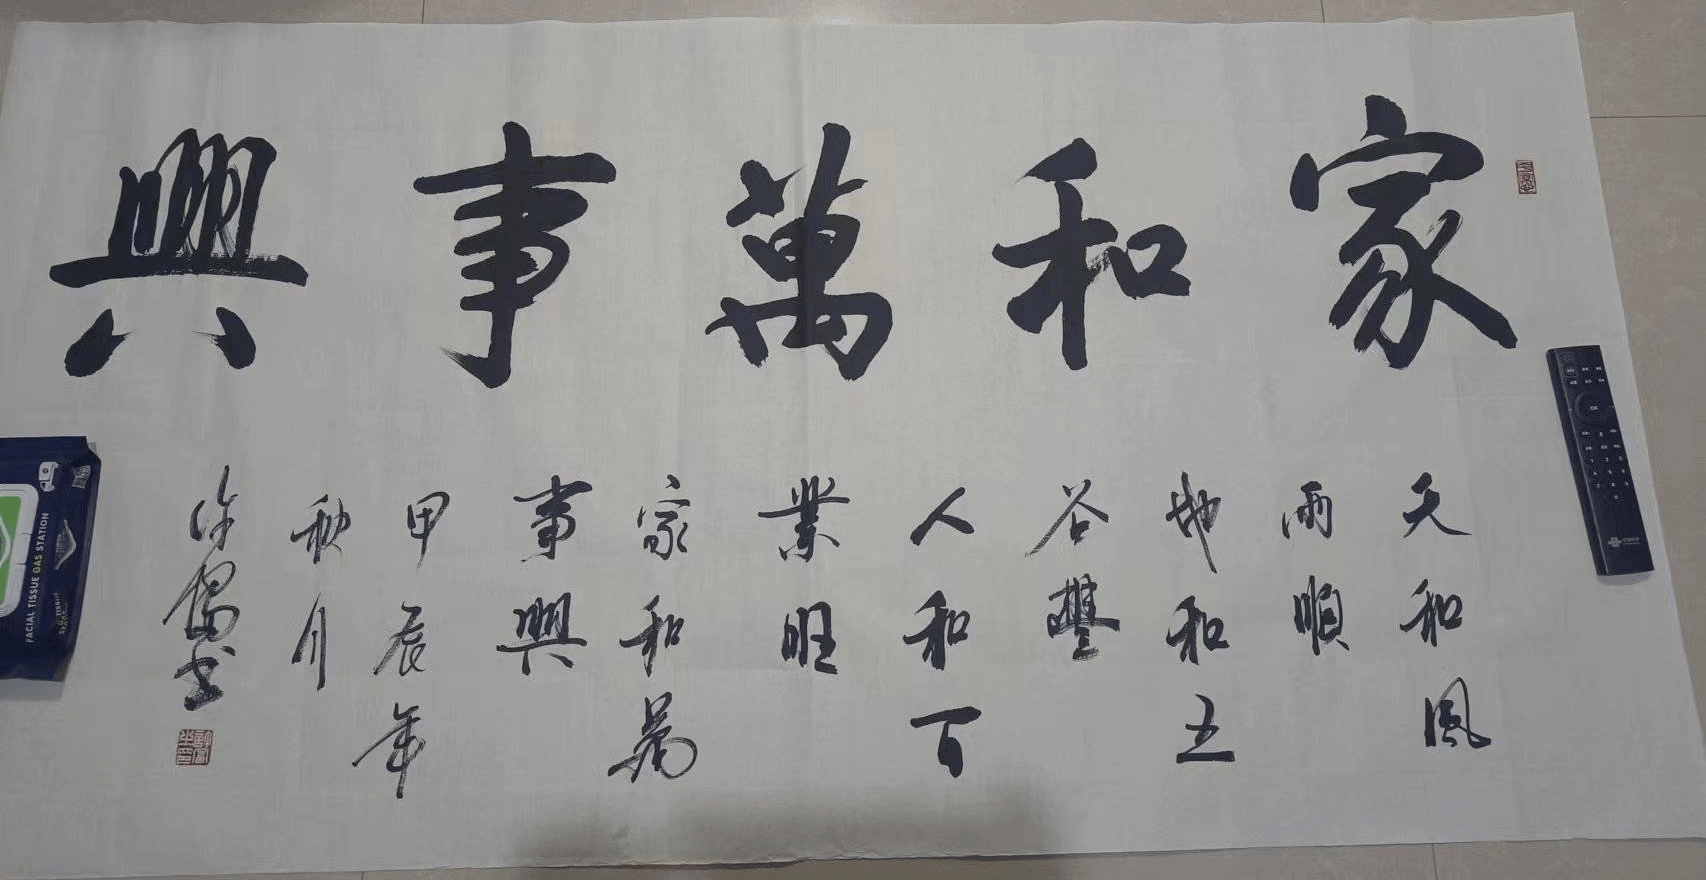 家和萬事興
天和風
雨順
地和五
谷豐
人和百
業旺
家和萬
事興
甲辰年
秋月
書
FACIAL TISSUE GAS STATION
OK